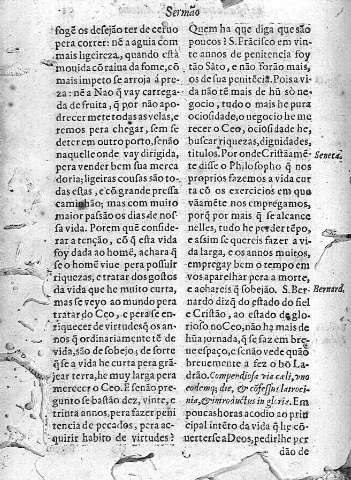 Sermão
fogẽ os desejão ter de ceruo
pera correr: nẽ a aguia com
mais ligeireza, quando està
mouida cõ raiua da fome, cõ
mais impeto se arroja á pre-
za: nẽ a Nao q̃ vay carrega-
da de fruita, q̃ por não apo-
drecer mete todas as velas, e
remos pera chegar, sem se
deter em outro porto, senão
naquelle onde vay dirigida,
pera vender bem sua merca
doria; ligeiras cousas são to-
das estas, e cõ grande pressa
caminhão; mas com muito
maior passão os dias de nos-
sa vida. Porem quẽ conside-
rar a tenção, cõ q̃ esta vida
foy dada ao homẽ, achará q̃
se o homẽ viue pera possuir
riquezas, e tratar dos gostos
da vida que he muito curta,
mas se veyo ao mundo pera
tratar do Ceo, e pera se en-
riquecer de virtudes q̃ os an-
nos q̃ ordinariamente tẽ de
vida, são de sobejo; de sorte
q̃ se a vida he curta pera grã-
jear terra, he muy larga pera
merecer o Ceo. E senão pre-
gunto se bastão dez, vinte, e
trinta annos, pera fazer peni
tencia de pecados, pera ac-
quirir habito de virtudes?
Quem ha que diga que são
poucos? S. Frãcisco em vin-
te annos de penitencia foy
tão Sãto, e não forão mais,
os de sua penitẽcia. Pois a vi
da não tẽ mais de hũ só ne-
gocio, tudo o mais he pura
ociosidade, o negocio he me
recer o Ceo, ociosidade he,
buscar riquezas, dignidades,
titulos. Por onde Cristãame-
te disse o Philosopho q̃ nos
Seneca.
proprios fazemos a vida cur
ta cõ os exercicios em que
vãamẽte nos empregamos,
porq̃ por mais q̃ se alcance
nelles, tudo he perder tẽpo,
e assim se quereis fazer a vi-
da larga, e os annos muitos,
empregay bem o tempo em
vos aparelhar pera a morte,
e achareis q̃ sobejão. S. Ber-
Bernard.
nardo dizq̃ do estado do fiel
e Cristão, ao estado de glo-
rioso no Ceo, não ha mais de
hũa jornada, q̃ se faz em bre-
ue espaço, e senão vede quão
breuemente a fez o bõ La-
drão. Compendiosa via cæli, vno
eodemq; die, & cõfessus latroci-
nia, & introductus in gloria. Em
poucas horas acodio ao prin
cipal intẽto da vida q̃ he cõ-
uerterse a Deos, pedirlhe per
dão de